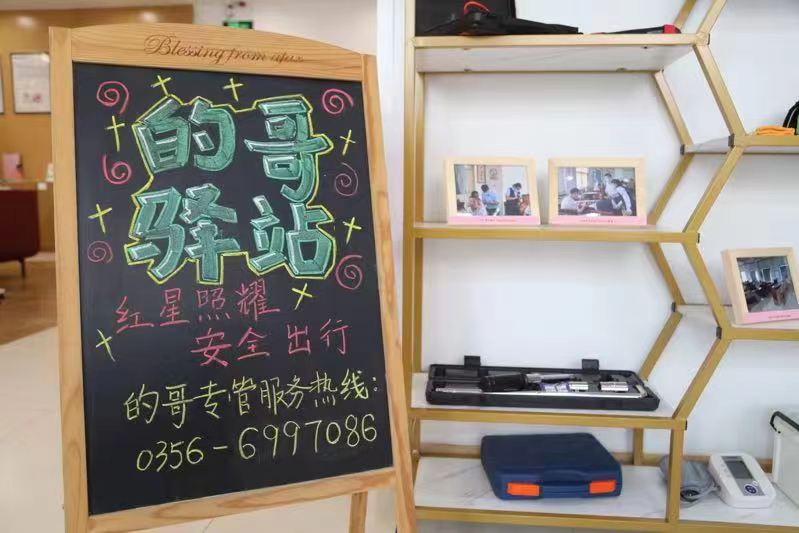 Blessing from ajax
的哥
驿站
红星照耀
安全出行
的哥专管服务热线:
0356-6997086